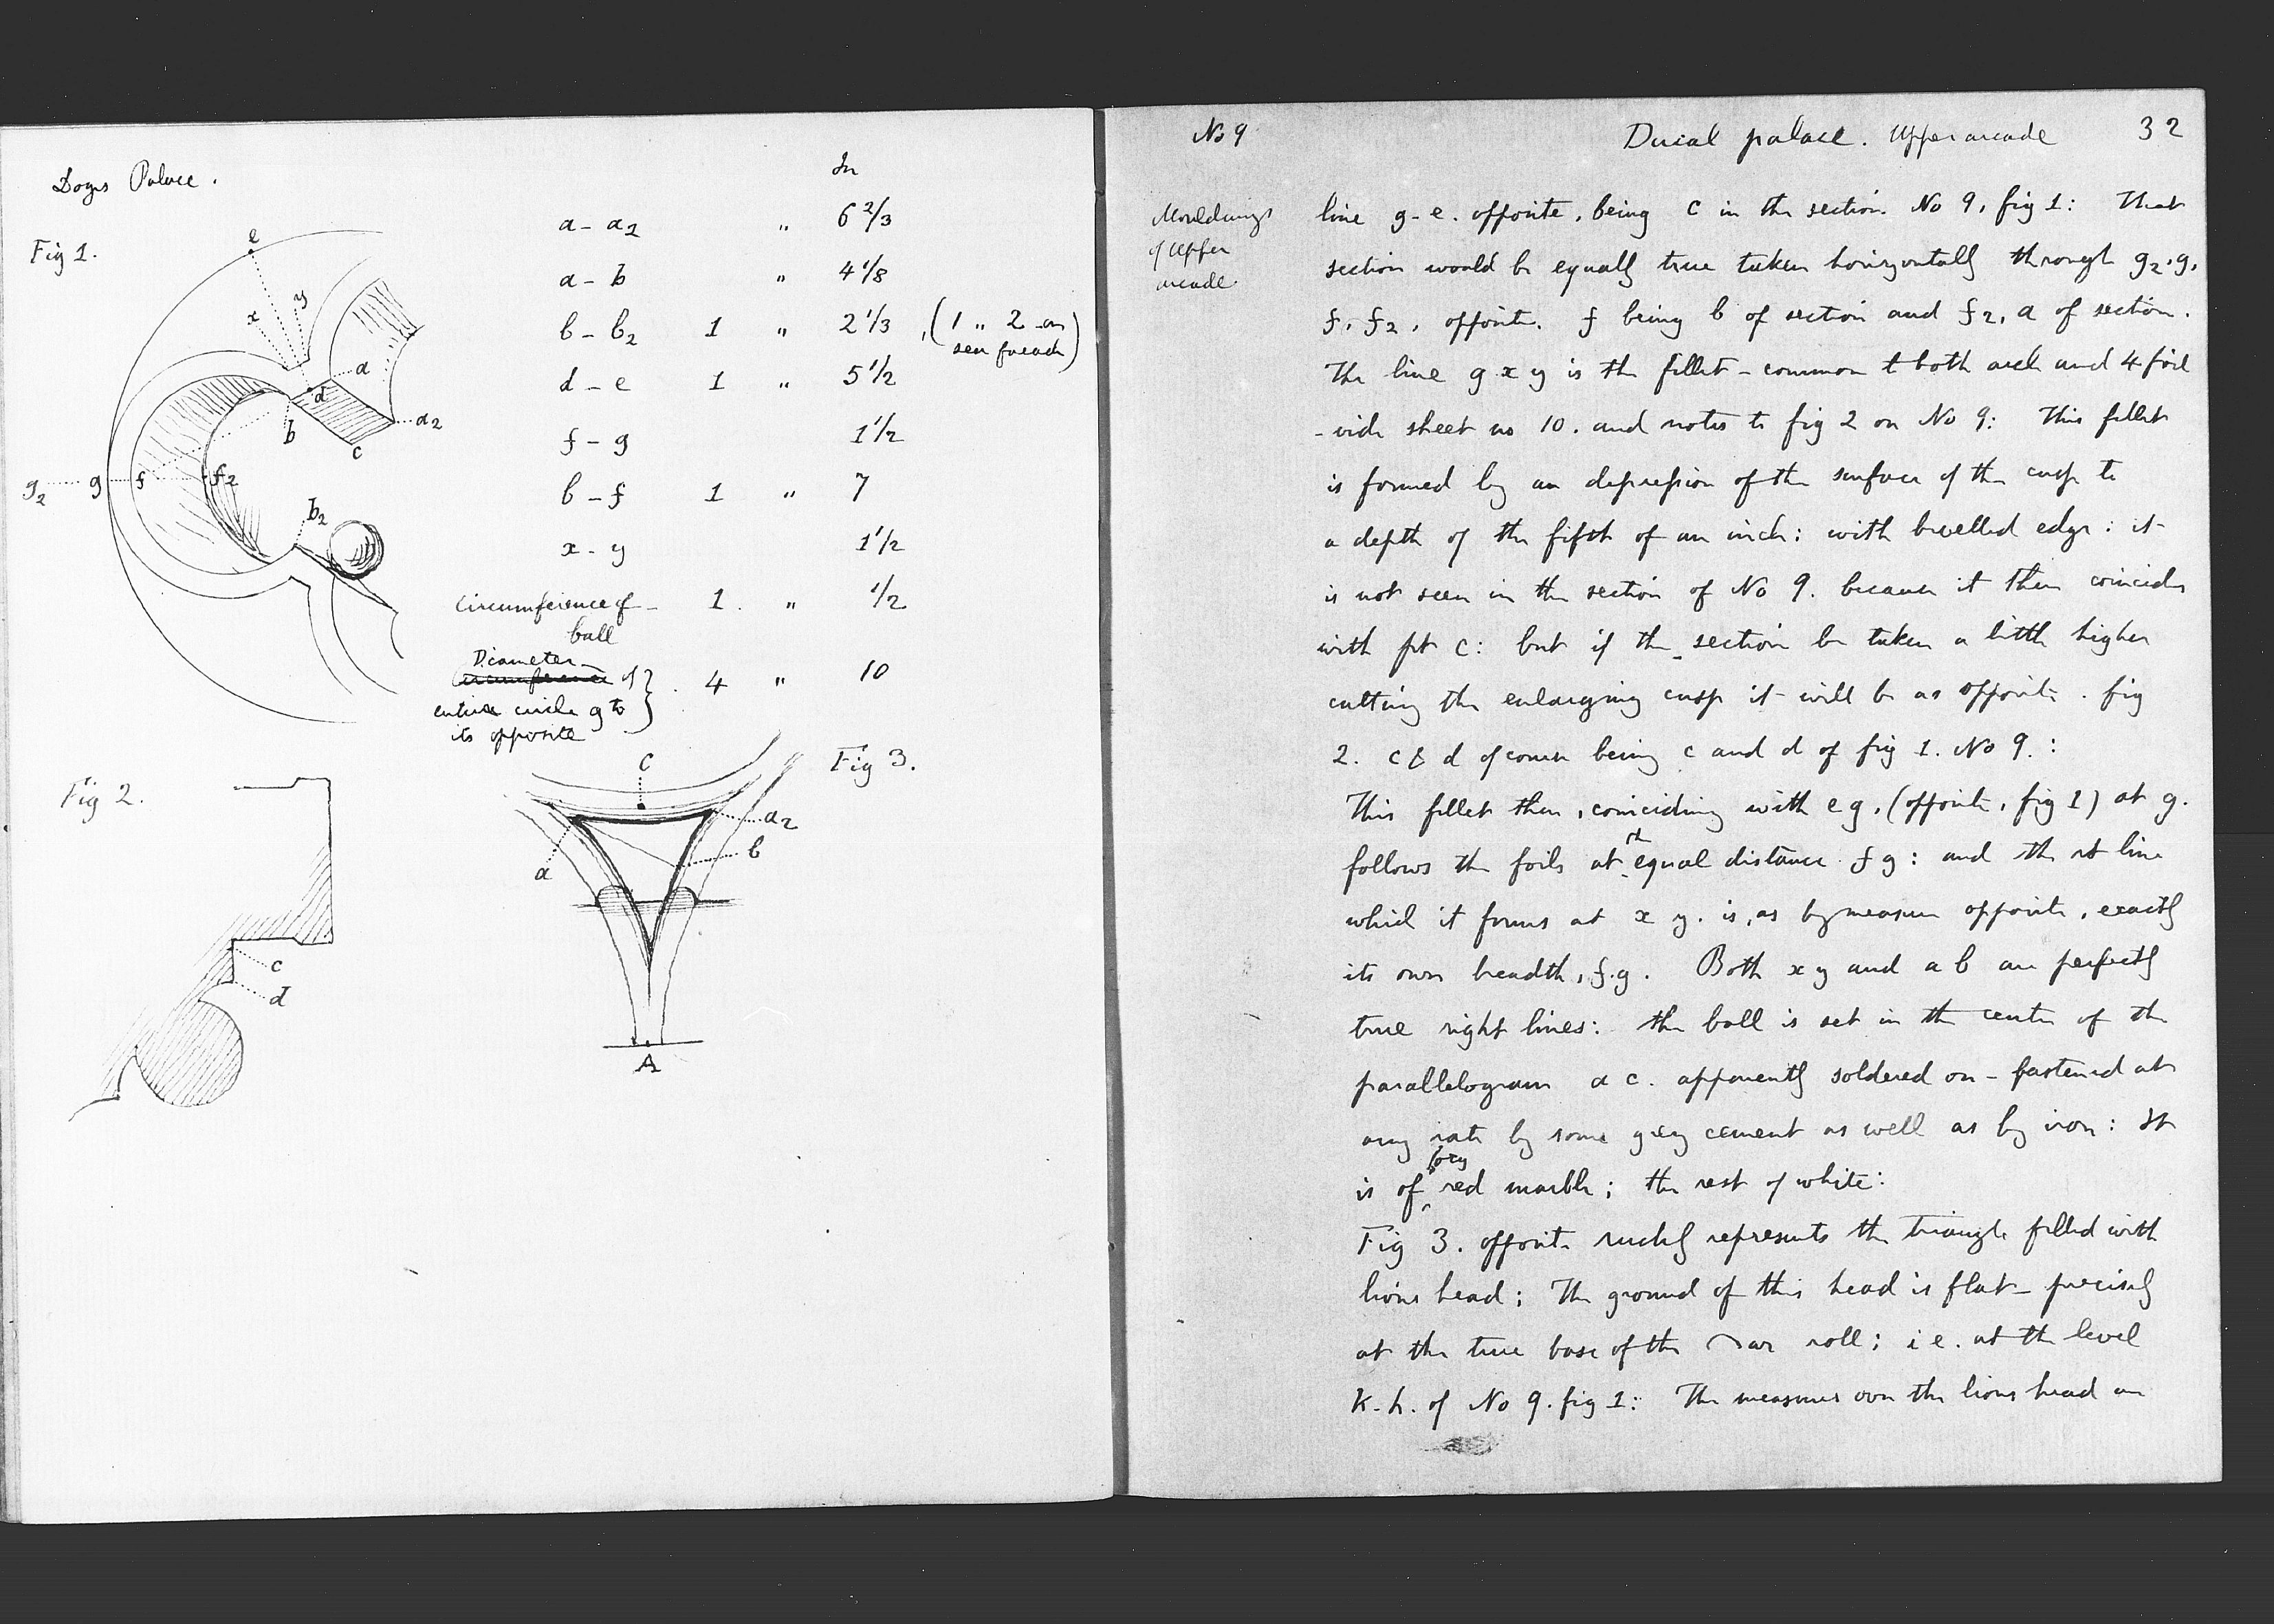 Doges Palace.
Fig 1.
e
y
x
a
d
a2
b
c
g2 g f f2
b2
In
a - a2 " 6 2/3
a - b " 4 1/8
b - b2 1 " 2 1/3, (1 " 2 on
sea facade)
d - e 1 " 5 1/2
f - g 1 1/2
b - f 1 " 7
x - y 1 1/2
Circumference of - 1. " 1/2
ball
Diameter
Circumference of } . 4 " 10
entire circle g to
its opposite
Fig 2.
c
d
Fig 3.
C
a2
b
a
A
No 9
Ducal palace. Upper arcade 32
Mouldings
of Upper
arcade.
line g-e. opposite, being c in the section No 9, fig 1: That
section would be equally true taken horizontally through g2, g,
f, f2, opposite. f being b of section and f2, a of section.
The line g x y is the fillet - common to both arch and 4 foil
- vide sheet no 10. and notes to fig 2 on No 9: This fillet
is formed by an depression of the surface of the cusp to
a depth of the fifth of an inch: with bevelled edge: it
is not seen in the section of No 9. because it then coincides
with pt c: but if the section be taken a little higher
cutting the enlarging cusp it will be as opposite. fig
2. c & d of course being c and d of fig 1. No 9. :
This fillet then, coinciding with e g, (opposite, fig 1) at g.
follows the foils at equal distance f g: and the rt line
which it forms at x y. is, as by measure opposite, exactly
its own breadth, f.g. Both x y and a b are perfectly
true right lines: the ball is set in the centre of the
parallelogram a c. apparently soldered on - fastened at
any rate by some grey cement as well as by iron: It
is of red marble; the rest of white:
Fig 3. opposite rudely represents the triangle filled with
lions head; The ground of this head is flat - precisely
at the true base of the roll; i e. at the level
K-h. of No 9. fig 1: The measures over the lions head are